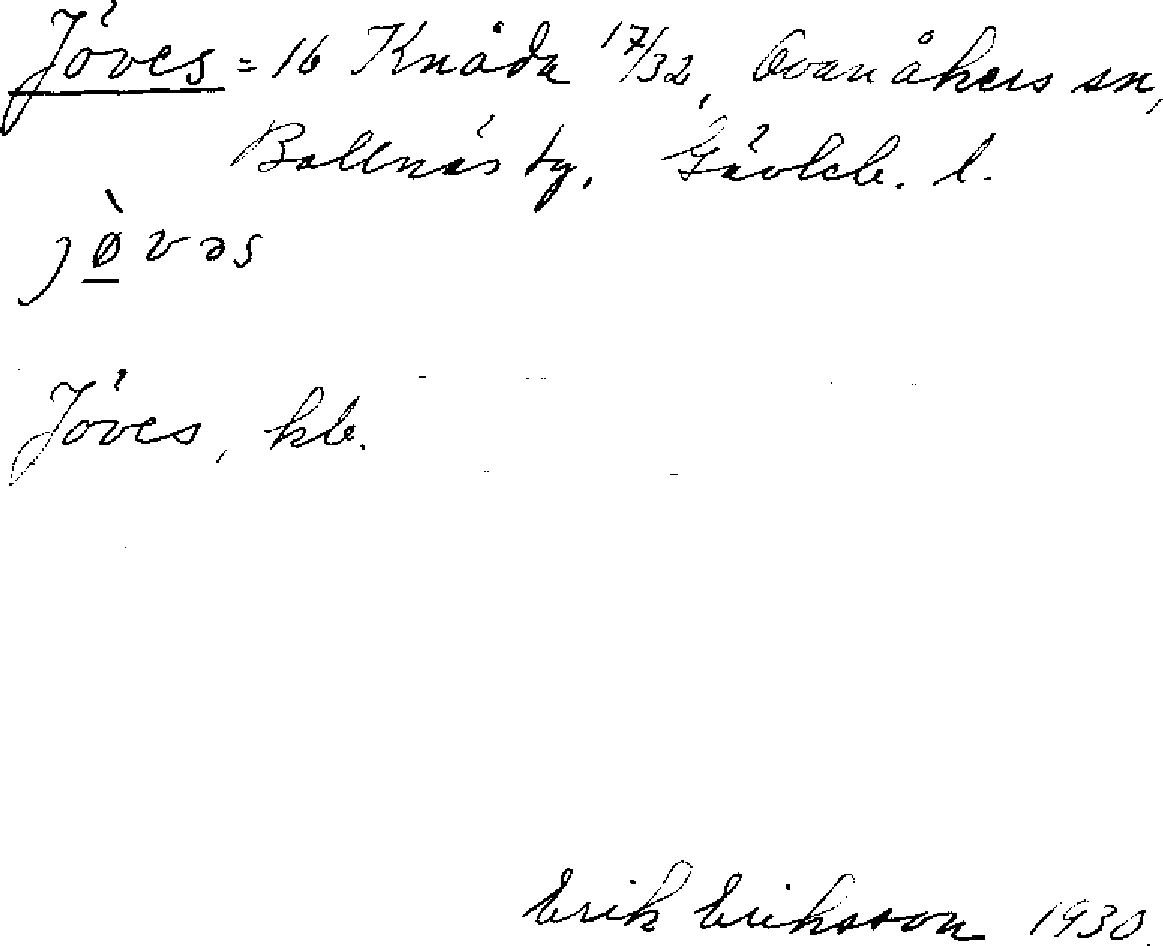 Jöves = 16 Knåda 17/32, Ovanåkers sn,
Bollnäs tg, Gävleb. l.
jø̀vəs
Jöves, kb.
Erik Eriksson 1930.